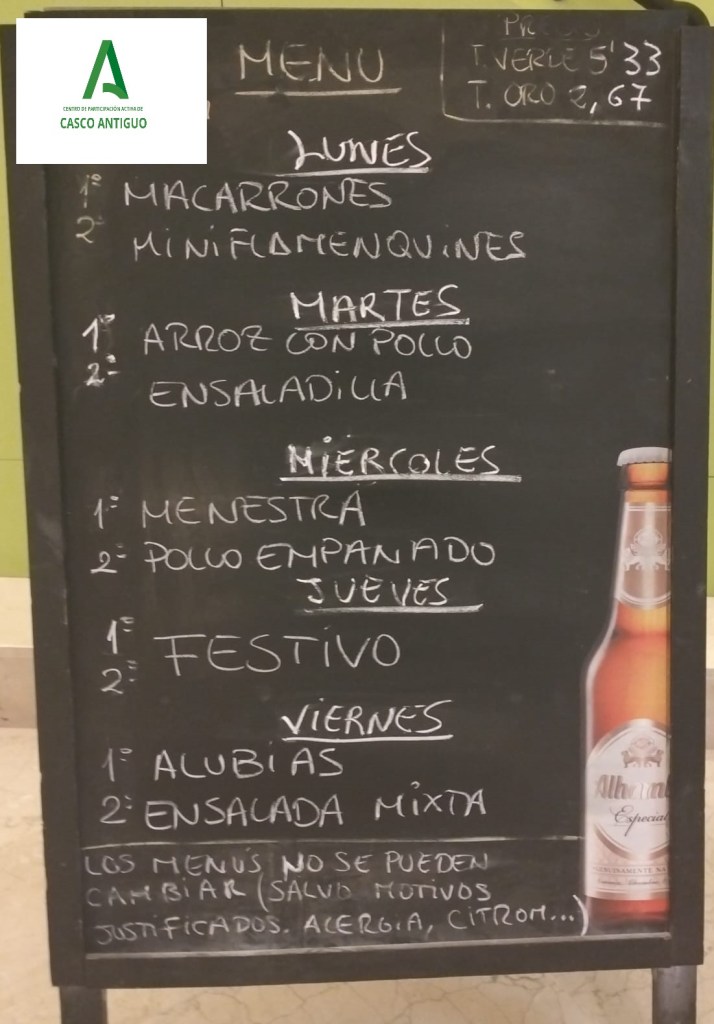 CENTRO DE PARTICIPACIÓN ACTIVA DE
CASCO ANTIGUO
MENU
T. VERDE 5'33
T. ORO 2,67
LUNES
1º MACARRONES
2º MINIFLAMENQUINES
MARTES
1º ARROZ CON POLLO
2º ENSALADILLA
MIERCOLES
1º MENESTRA
2º POLLO EMPANADO
JUEVES
1º
2º FESTIVO
VIERNES
1º ALUBIAS
2º ENSALADA MIXTA
LOS MENUS NO SE PUEDEN
CAMBIAR (SALVO MOTIVOS
JUSTIFICADOS. ALERGIA, CITROM...)
Especial